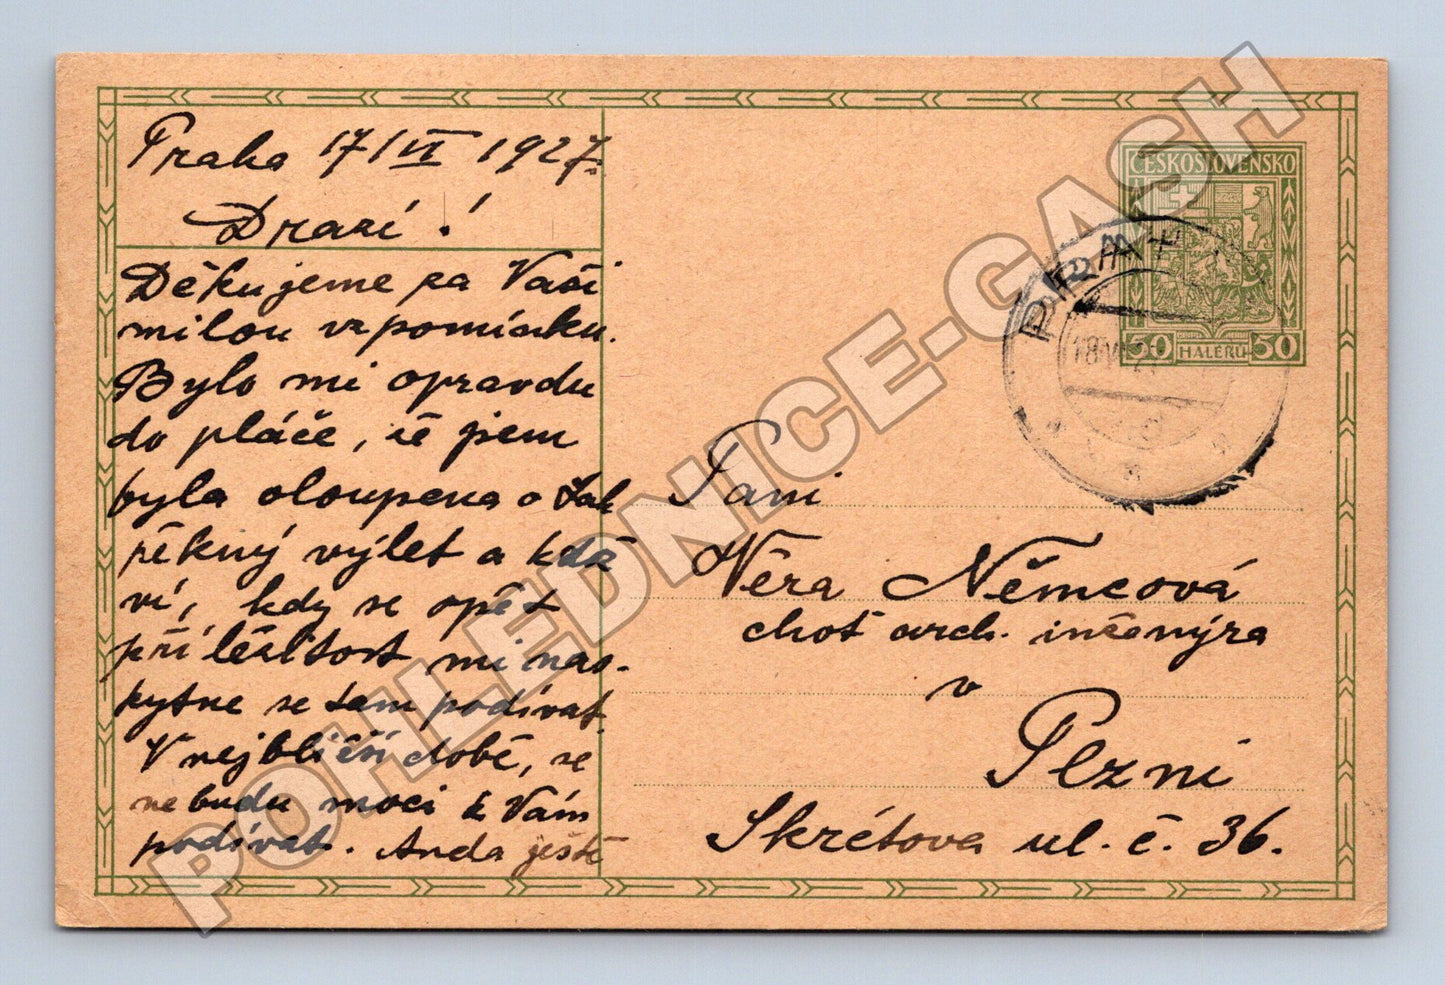 Praha 17/VI 1927.
Drazí!
Děkujeme za Vaši
milou vzpomínku.
Bylo mi opravdu
do pláče, že jsem
byla oloupena o tak
pěkný výlet a kdž
ví, kdy se opět
příležitost mi nas-
kytne se tam podívat.
V nejbližší době, se
nebudu moci k Vám
podívat. Anda ještě
ČESKOSLOVENSKO
50 HALÉŘŮ 50
18.VI.27
Paní
Věra Němcová
choť arch. inženýra
v
Plzni
Skrétova ul. č. 36.
POHLEDNICE-GASH